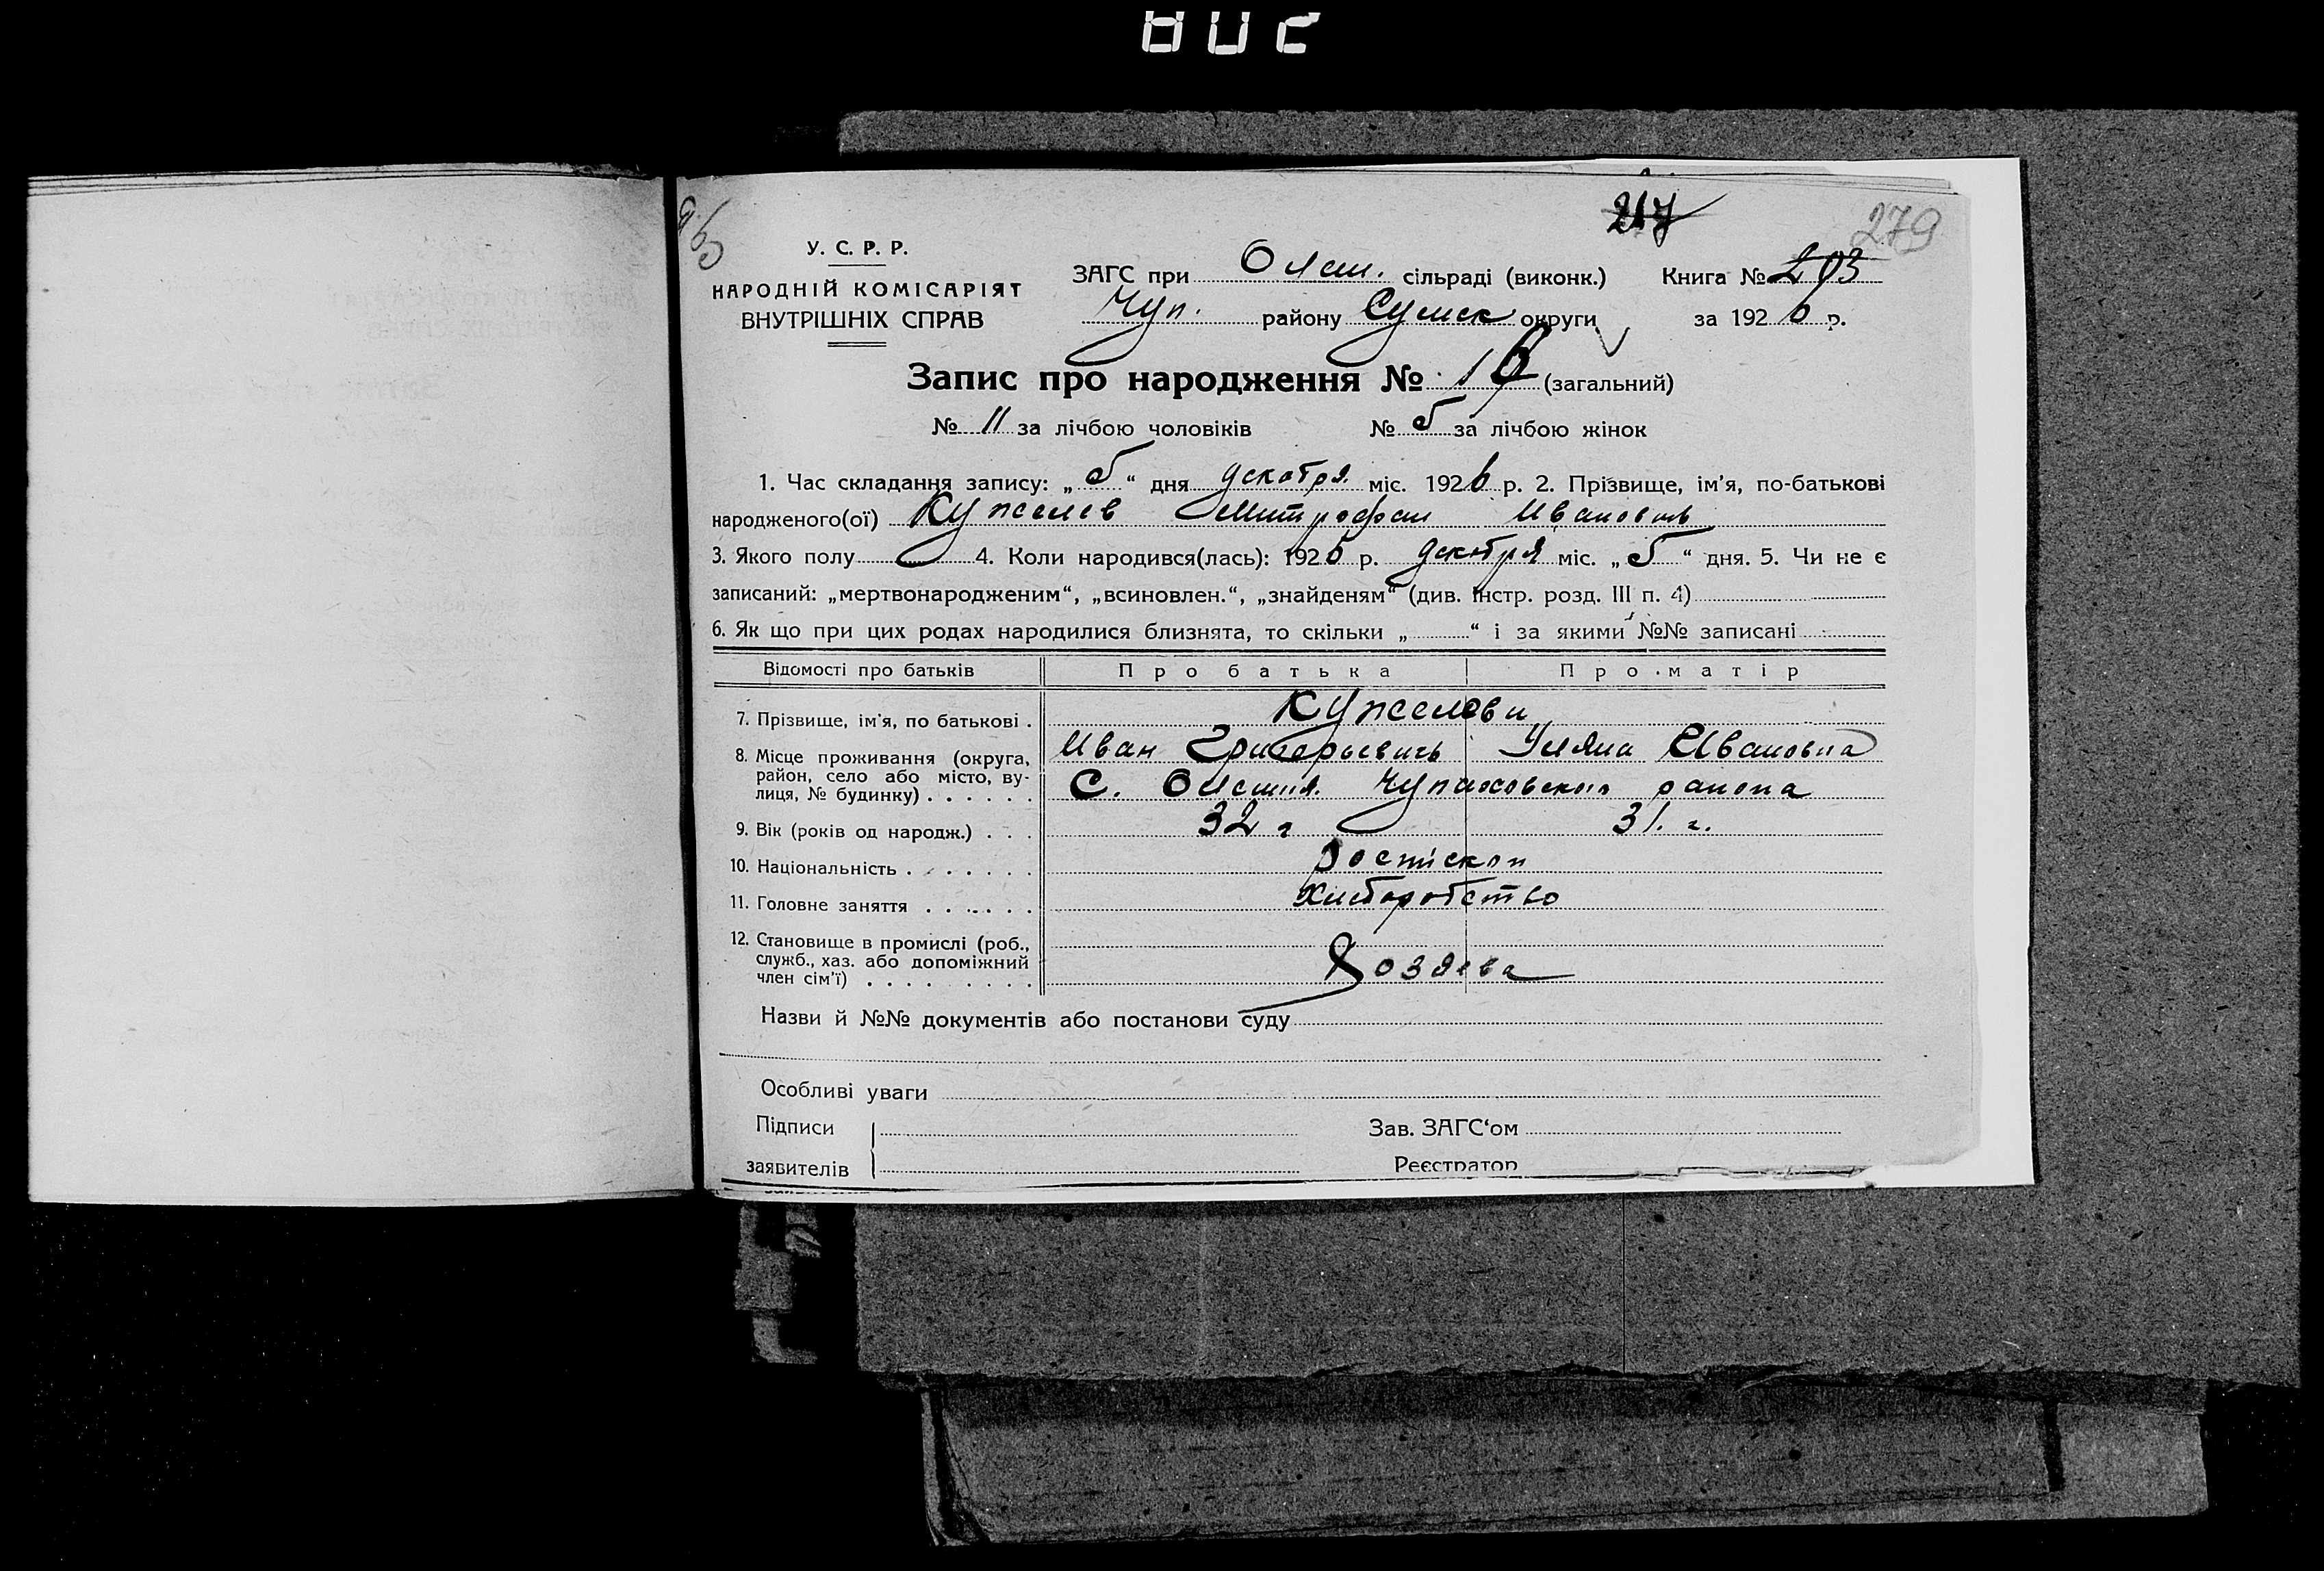 802
217
279
У. С. Р. Р.
НАРОДНІЙ КОМІСАРІЯТ
ВНУТРІШНІХ СПРАВ
ЗАГС при Олеш. сільраді (виконк.) Книга № 203
Чуп. району Сумск округи за 1926 р.
Запис про народження № 16 (загальний)
№ 11 за лічбою чоловіків № 5 за лічбою жінок
1. Час складання запису: „5“ дня декабря міс. 1926 р. 2. Прізвище, ім'я, по-батькові
народженого(ої) Кужелев Митрофан Иванович
3. Якого полу 4. Коли народився(лась): 1926 р. декабря міс. „5“ дня. 5. Чи не є
записаний: „мертвонародженим“, „всиновлен.“, „знайденям“ (див. інстр. розд. III п. 4)
6. Як що при цих родах народилися близнята, то скільки „ “ і за якими №№ записані
Відомості про батьків Про батька Про матір
7. Прізвище, ім'я, по батькові . Кужелеви
Иван Григорьевичь Уляна Ивановна
8. Місце проживання (округа,
район, село або місто, ву-
лиця, № будинку) . . . . . . С. Олешня. Чупаховского района
9. Вік (років од народж.) . . . 32 г 31. г.
10. Національність . . . . . . .
11. Головне заняття . . . . . . Хлиборобство
12. Становище в промислі (роб.,
служб., хаз. або допоміжний
член сім'ї) . . . . . . . . . Хозяева
Назви й №№ документів або постанови суду
Особливі уваги
Підписи Зав. ЗАГС‘ом
заявителів Реєстратор